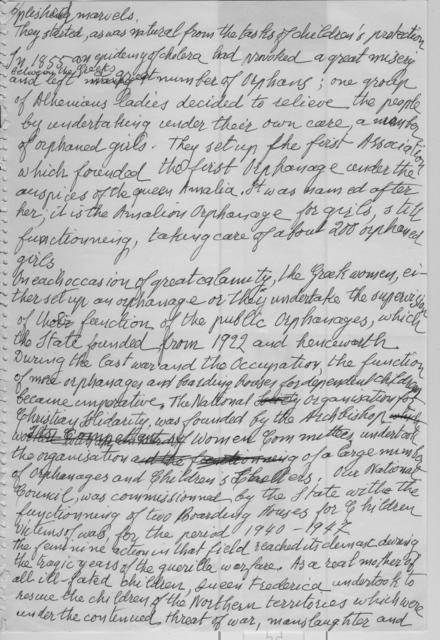 marvels.
They started, as was natural from the tasks of children's protection
In 1855 an epidemy of cholera had provoked a great misery
between the Greek
and left great number of Orphans; one group
of Athenians Ladies decided to relieve the people
by undertaking under their own care, a number
of orphaned girls. They set up the first Association
which founded the first Orphanage under the
auspices of the queen Amalia. It was named after
her, it is the Amalion Orphanage for girls, still
functionneing, taking care of about 200 orphaned
girls
On each occasion of great calamity, the Greek women, ei-
ther set up an orphanage or they undertake the supervision
of the function of the public Orphanages, which
the State founded from 1922 and henceworth
During the last war and the Occupation, the function
of more orphanages and boarding houses for dependent children
became imperative. The National organisation for
Christian Solidarity, was founded by the Archbishop
Women Committees undertook
the organisation of a large number
of Orphanages and Children's Shelters. Our National
Council, was commissionned by the State with the
functionning of two Boarding Houses for Children
victims of war for the period 1940-1947
The feminine action in that field reached its climax during
the tragic years of the guerilla warfare. As a real mother of
all ill fated children, queen Frederica undertook to
rescue the children of the Northern territories which were
under the continued threat of war, manslaughter and